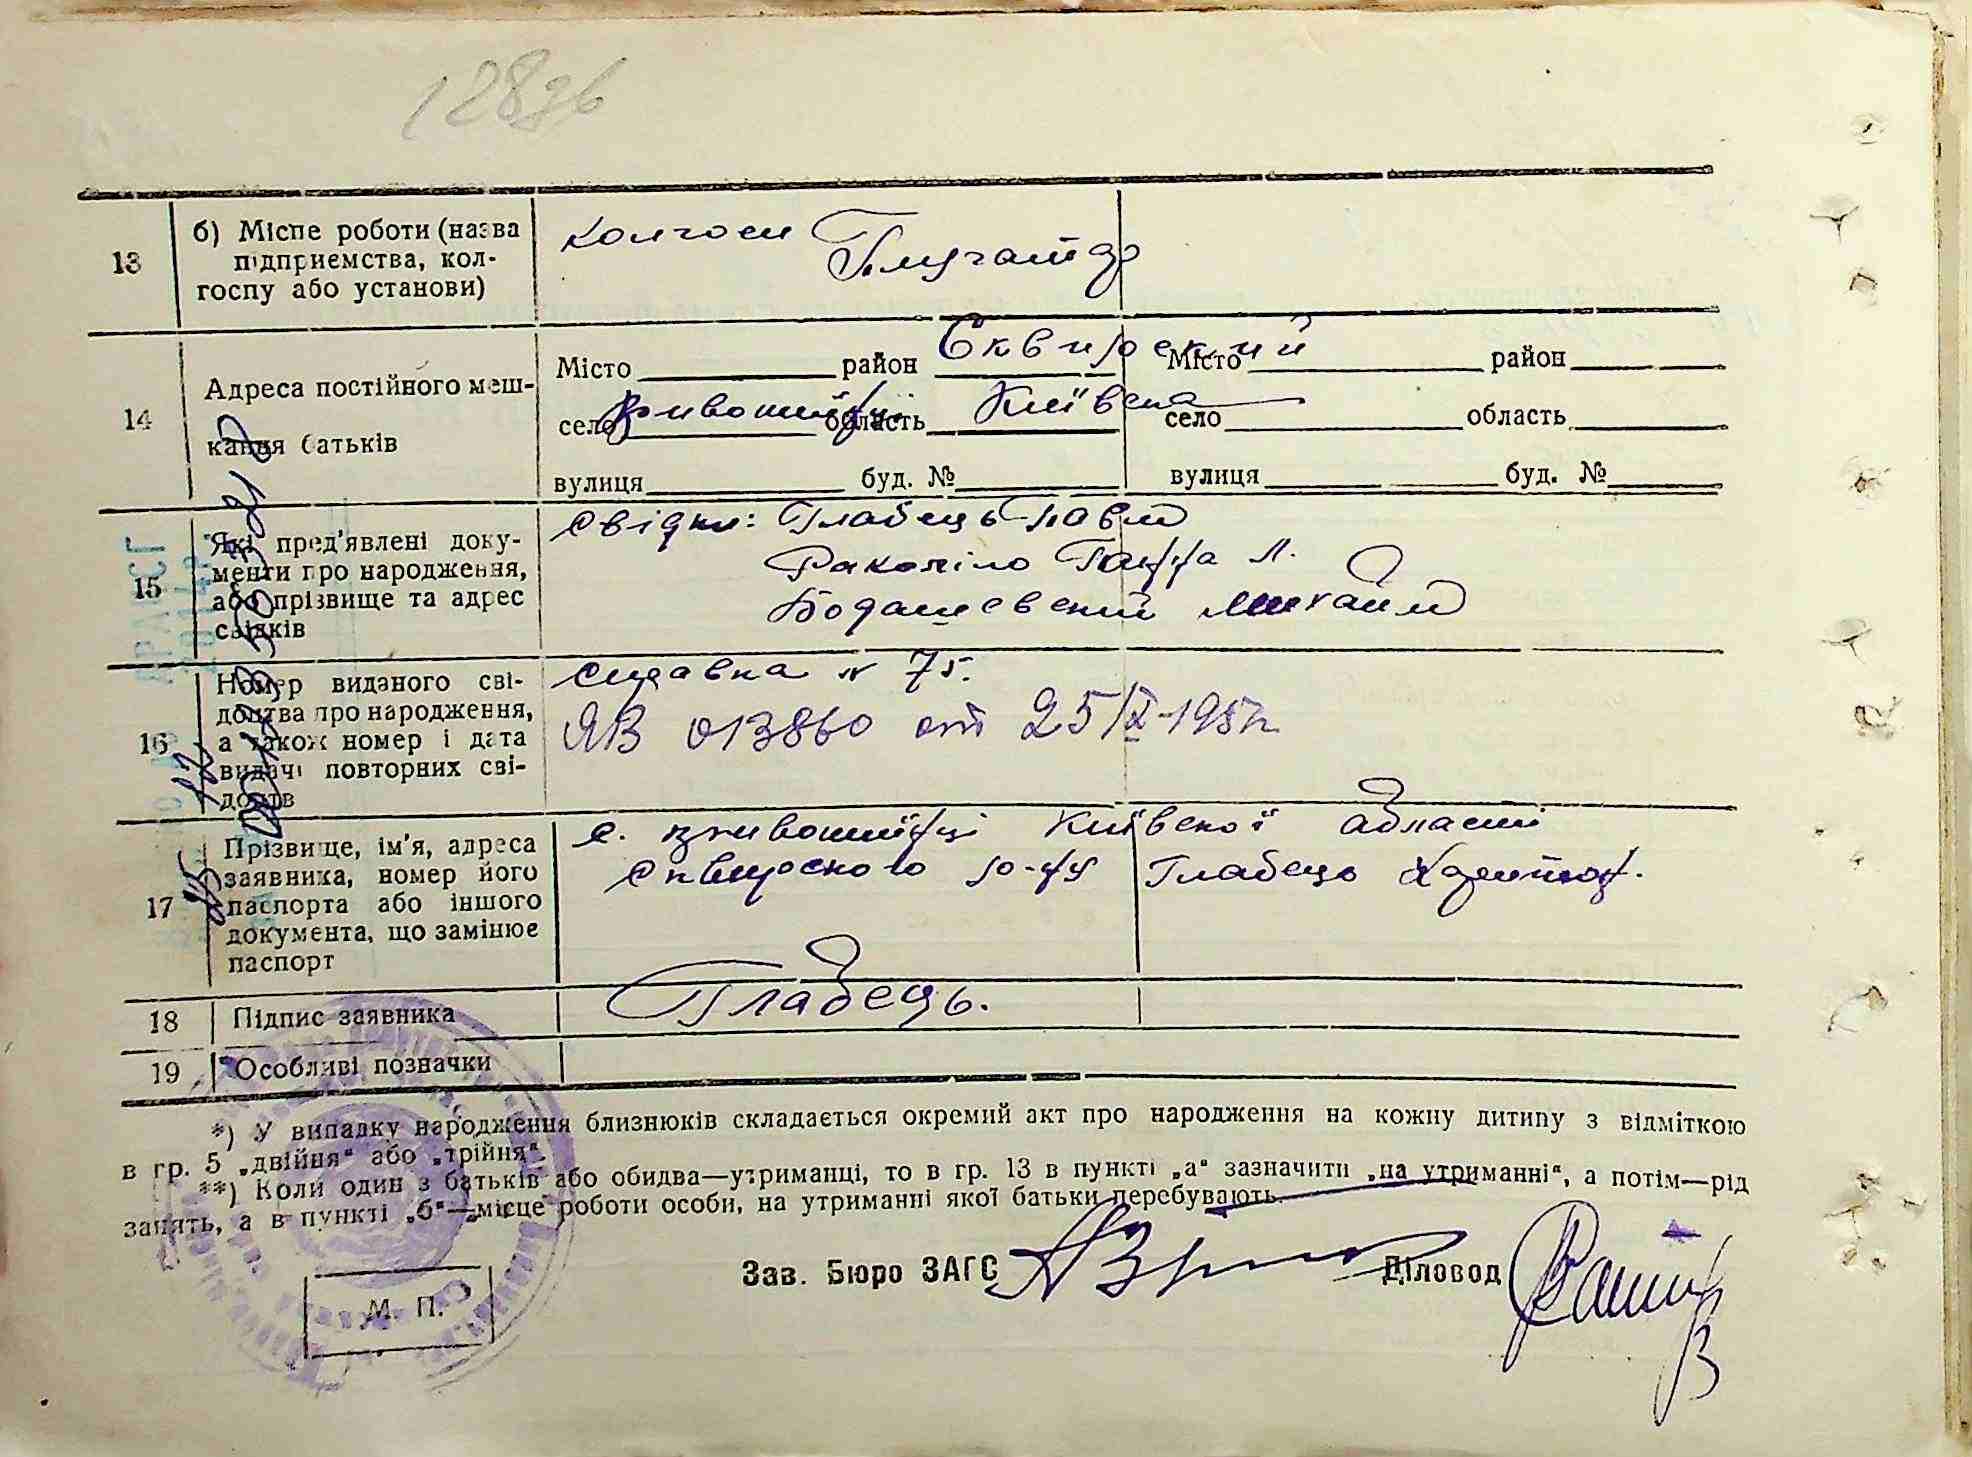 128зв
13
б) Місце роботи (назва
підприємства, кол-
госпу або установи)
колгосп
Плугатар
14
Адреса постійного меш-
кання батьків
Місто район Сквирський
село Кривошиїнці область Київська
вулиця буд. №
Місто район
село область
вулиця буд. №
15
Які пред'явлені доку-
менти про народження,
або прізвище та адрес
свідків
Свідки: Глабець Павло
Ганна Л.
Михайло
16
Номер виданого сві-
доцтва про народження,
а також номер і дата
видачі повторних сві-
доцтв
справка № 75.
ЯВ 013860 от 25/IX-195
17
Прізвище, ім'я, адреса
заявника, номер його
паспорта або іншого
документа, що замінює
паспорт
с. Кривошиїнці Київської області
Сквирського р-ну Глабець
18
Підпис заявника
Глабець.
19
Особливі позначки
*) У випадку народження близнюків складається окремий акт про народження на кожну дитину з відміткою
в гр. 5 „двійня“ або „трійня“.
**) Коли один з батьків або обидва—утриманці, то в гр. 13 в пункті „а“ зазначити „на утриманні“, а потім—рід
занять, а в пункті „б“—місце роботи особи, на утриманні якої батьки перебувають.
Зав. Бюро ЗАГС
Діловод
М. П.